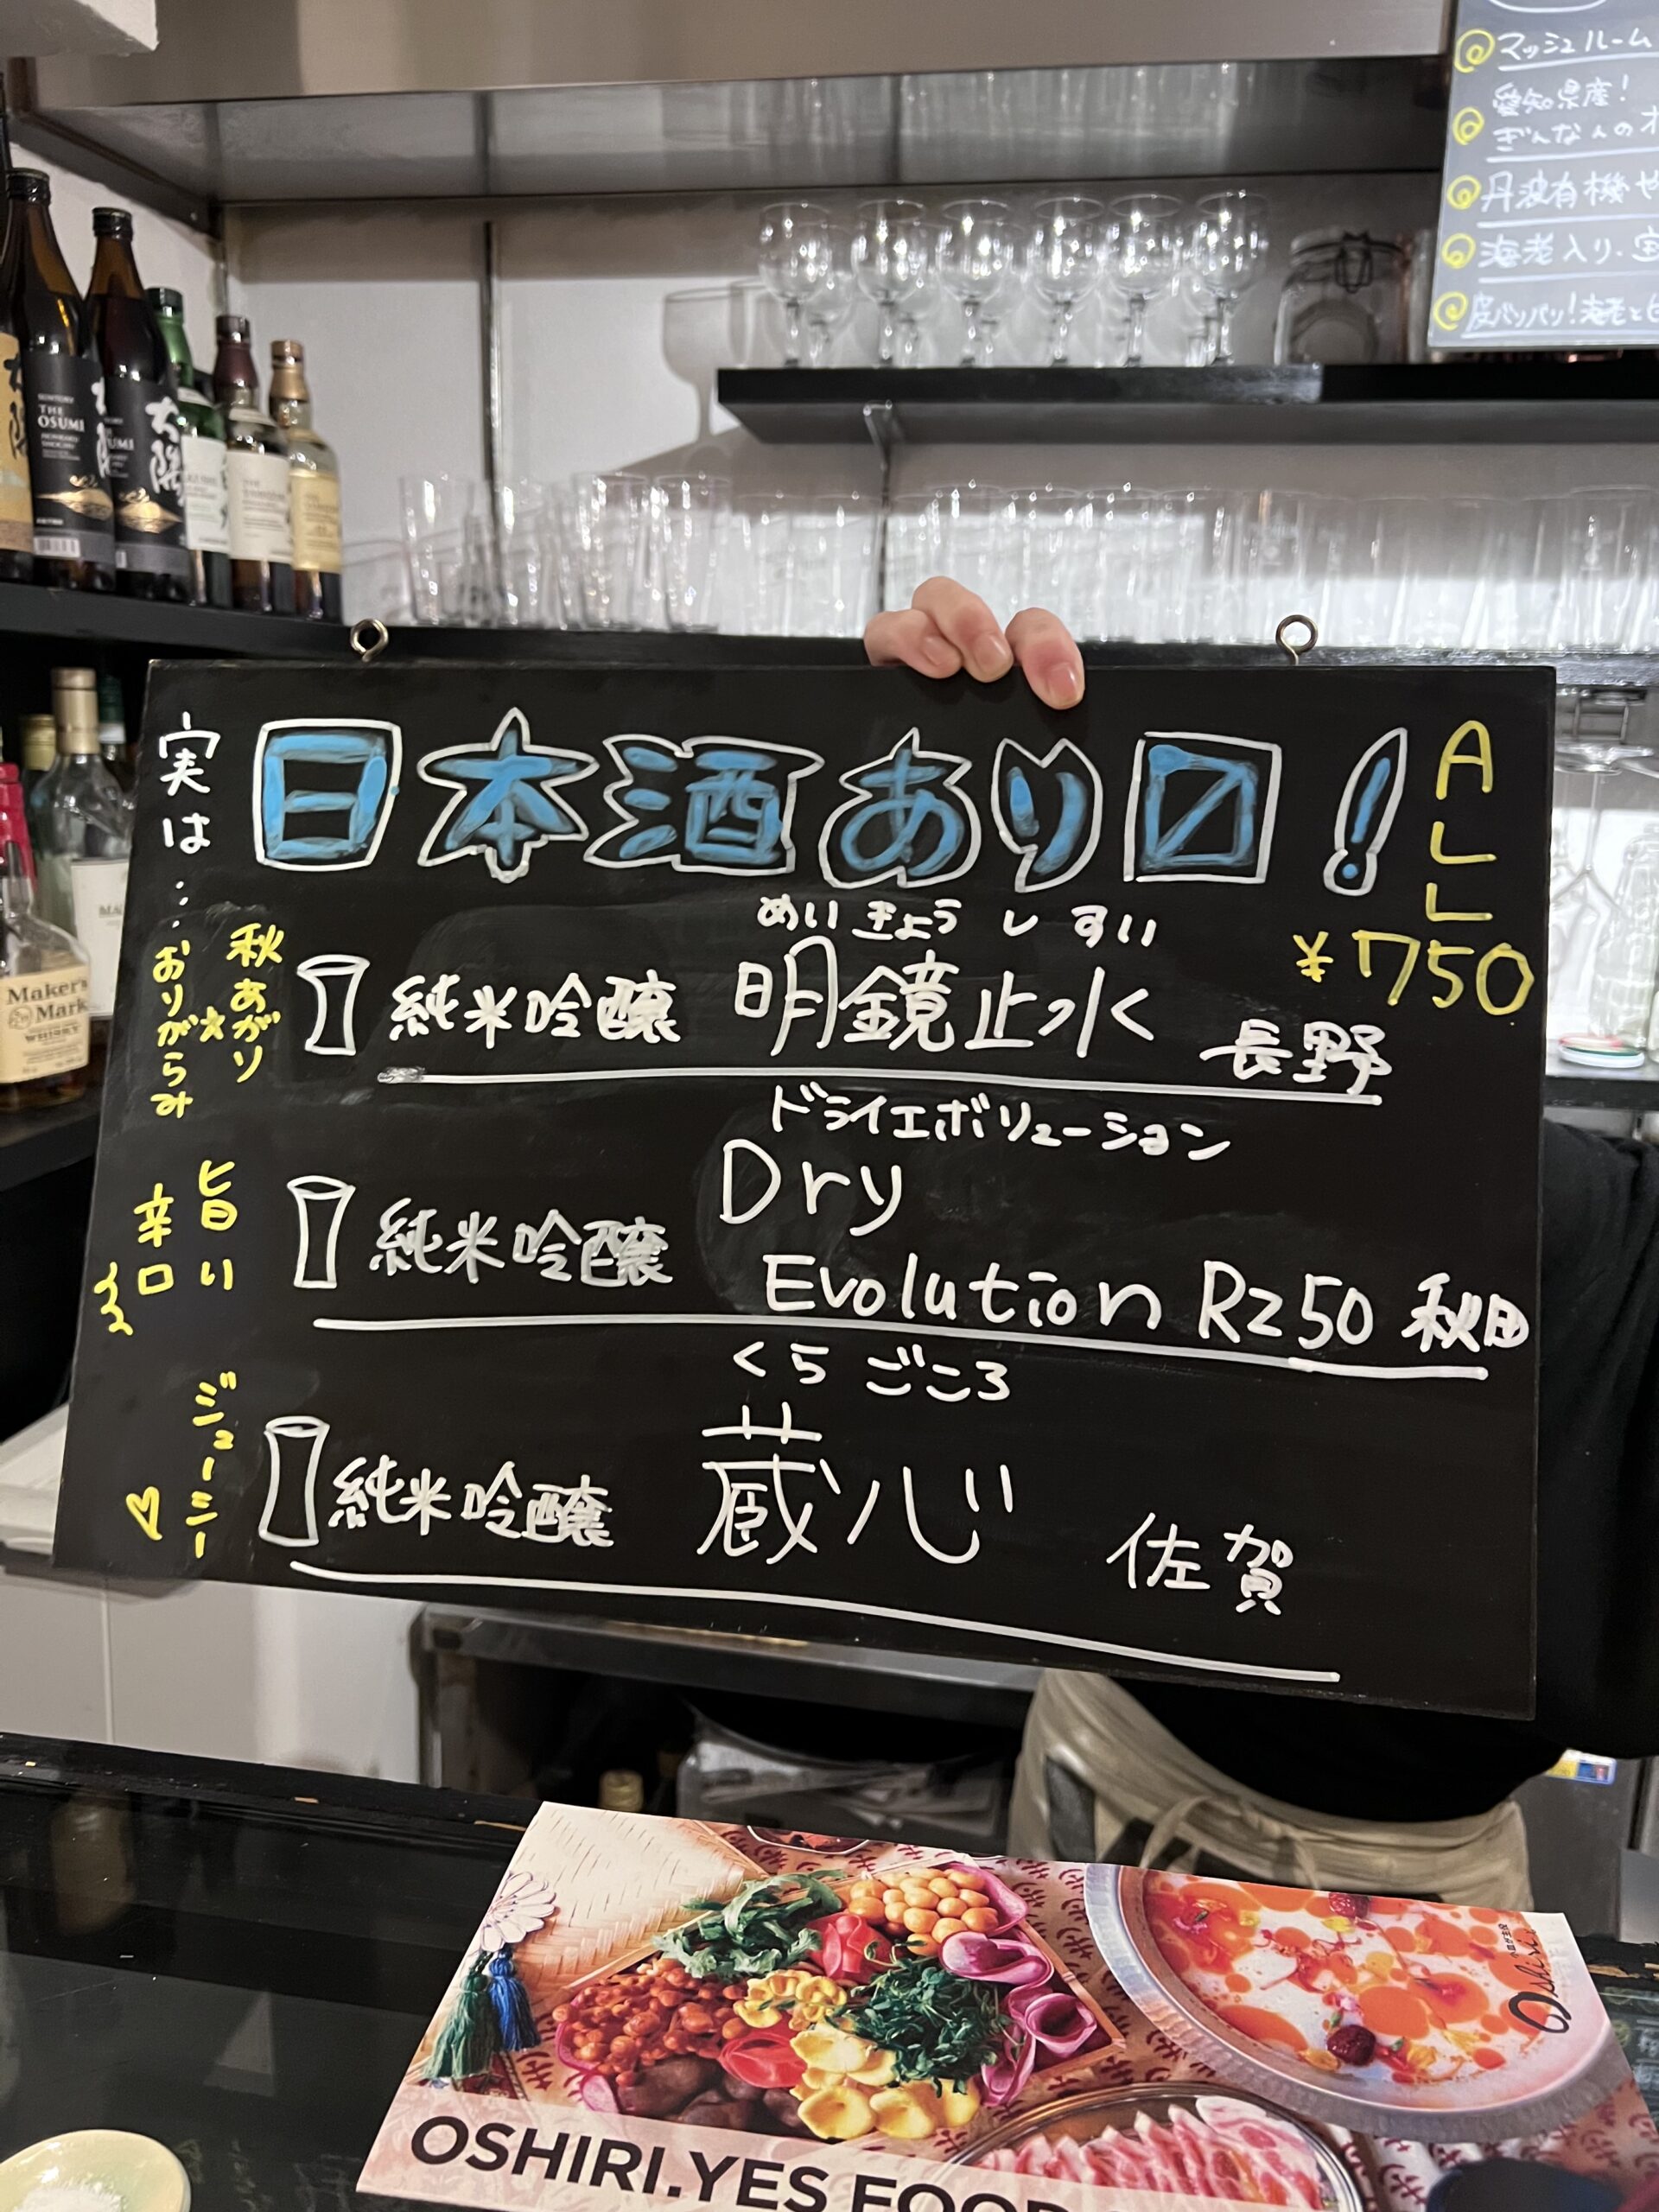 マッシュルーム
愛知県産!
ぎんなんのオ
丹波有機や
海老入り・
皮パリパリ!海老と
SUNTORY
THE
OSUMI
大隅
Maker's
Mark
WHISKY
実は…
日本酒あり〼!
ALL
¥750
秋あがり
★
おりがらみ
めいきょうしすい
純米吟醸 明鏡止水 長野
旨い
辛口
ドライエボリューション
純米吟醸 Dry
Evolution Rz50 秋田
ジューシー
♡
くらごころ
純米吟醸 蔵心 佐賀
Oshiri
OSHIRI.YES FOOD